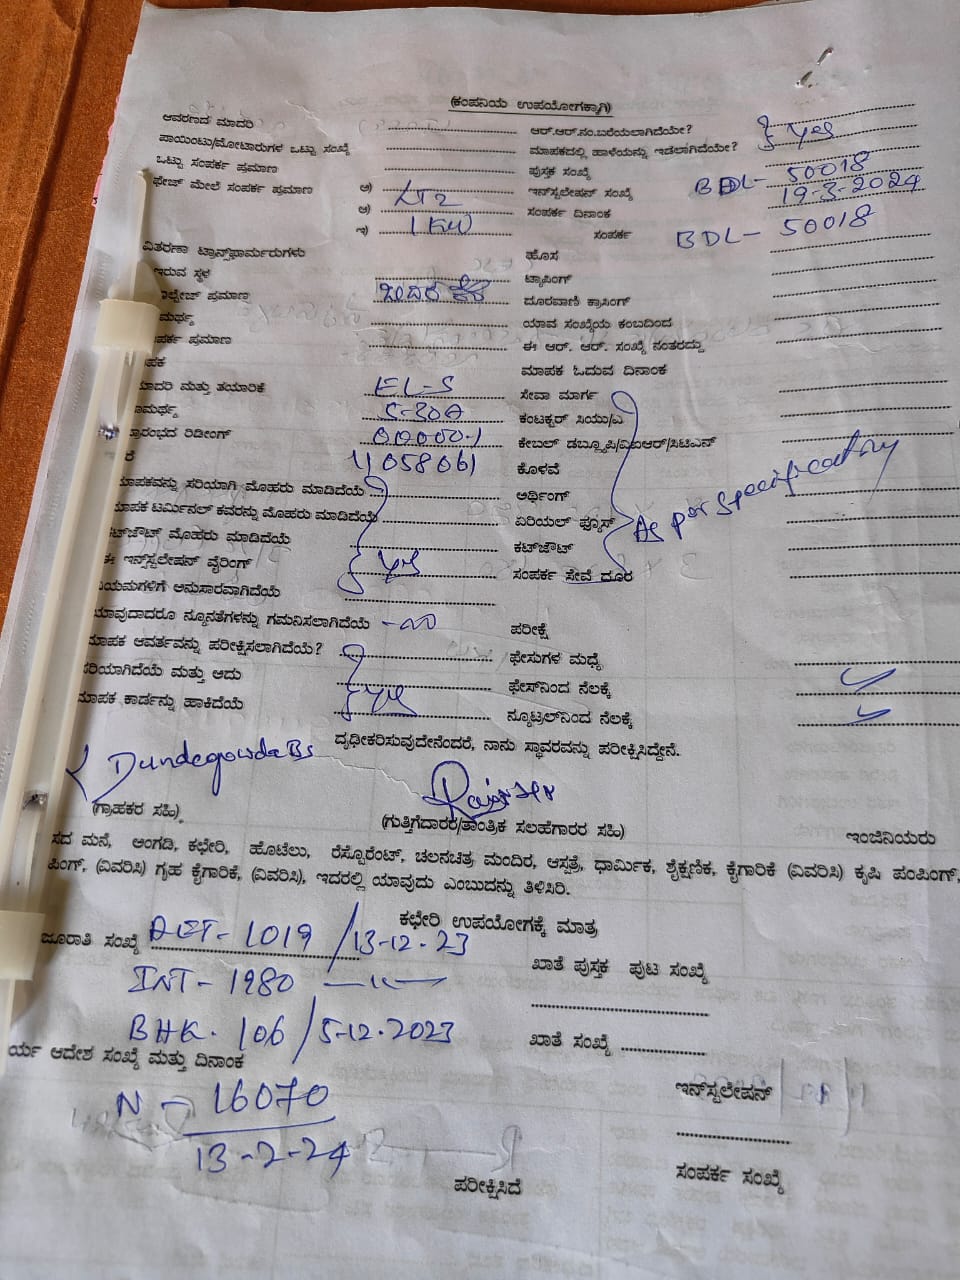 (ಕಂಪನಿಯ ಉಪಯೋಗಕ್ಕಾಗಿ)
ಆವರಣದ ಮಾದರಿ ಆರ್.ಆರ್.ನಂ.ಬರೆಯಲಾಗಿದೆಯೇ?
ಪಾಯಿಂಟು/ಮೋಟಾರುಗಳ ಒಟ್ಟು ಸಂಖ್ಯೆ ಮಾಪಕದಲ್ಲಿ ಹಾಳೆಯನ್ನು ಇಡಲಾಗಿದೆಯೇ? } yes
ಒಟ್ಟು ಸಂಪರ್ಕ ಪ್ರಮಾಣ ಪುಸ್ತಕ ಸಂಖ್ಯೆ
ಫೇಜ್ ಮೇಲೆ ಸಂಪರ್ಕ ಪ್ರಮಾಣ ಅ) LT2 ಇನ್‌ಸ್ಟಲೇಷನ್ ಸಂಖ್ಯೆ BDL- 50018
ಆ) ಸಂಪರ್ಕ ದಿನಾಂಕ 19-3-2024
ಇ) 1KW ಸಂಪರ್ಕ BDL- 50018
ವಿತರಣಾ ಟ್ರಾನ್ಸ್‌ಫಾರ್ಮರುಗಳು ಹೊಸ
ಇರುವ ಸ್ಥಳ ಟ್ಯಾಪಿಂಗ್
ಲ್ಟೇಜ್ ಪ್ರಮಾಣ ದೂರವಾಣಿ ಕ್ರಾಸಿಂಗ್
ಮರ್ಥ್ಯ ಯಾವ ಸಂಖ್ಯೆಯ ಕಂಬದಿಂದ
ಪರ್ಕ ಪ್ರಮಾಣ ಈ ಆರ್. ಆರ್. ಸಂಖ್ಯೆ ನಂತರದ್ದು
ಪಕ ಮಾಪಕ ಓದುವ ದಿನಾಂಕ
ಮಾದರಿ ಮತ್ತು ತಯಾರಿಕೆ EL-S ಸೇವಾ ಮಾರ್ಗ
ಾಮರ್ಥ್ಯ 5-30A ಕಂಟಕ್ಟರ್ ಸಿಯು/ಎ
್ರಾರಂಭದ ರಿಡೀಂಗ್ 00000.1 ಕೇಬಲ್ ಡಬ್ಲ್ಯೂಪಿ/ವಿಐಆರ್/ಸಿಟಿಎಸ್
ರೆ 11058061 ಕೊಳವೆ
ಮಾಪಕವನ್ನು ಸರಿಯಾಗಿ ಮೊಹರು ಮಾಡಿದೆಯೆ ಅರ್ಥಿಂಗ್
ಮಾಪಕ ಟರ್ಮಿನಲ್ ಕವರನ್ನು ಮೊಹರು ಮಾಡಿದೆಯೆ ಏರಿಯಲ್ ಫ್ಯೂಸ್ As per specification
ಕಟ್‌ಔಟ್ ಮೊಹರು ಮಾಡಿದೆಯೆ ಕಟ್‌ಔಟ್
ಈ ಇನ್‌ಸ್ಟಲೇಷನ್ ವೈರಿಂಗ್ } yes ಸಂಪರ್ಕ ಸೇವೆ ದೂರ
ಯಮಗಳಿಗೆ ಅನುಸಾರವಾಗಿದೆಯೇ
ಯಾವುದಾದರೂ ನ್ಯೂನತೆಗಳನ್ನು ಗಮನಿಸಲಾಗಿದೆಯೆ ಪರೀಕ್ಷೆ
ಮಾಪಕ ಆವರ್ತವನ್ನು ಪರೀಕ್ಷಿಸಲಾಗಿದೆಯೆ? ಫೇಸುಗಳ ಮಧ್ಯೆ
ಸರಿಯಾಗಿದೆಯೆ ಮತ್ತು ಅದು ಫೇಸ್‌ನಿಂದ ನೆಲಕ್ಕೆ
ಮಾಪಕ ಕಾರ್ಡನ್ನು ಹಾಕಿದೆಯೆ } yes ನ್ಯೂಟ್ರಲ್‌ನಿಂದ ನೆಲಕ್ಕೆ
ದೃಢೀಕರಿಸುವುದೇನೆಂದರೆ, ನಾನು ಸ್ಥಾವರವನ್ನು ಪರೀಕ್ಷಿಸಿದ್ದೇನೆ.
Dundegowda Bs
(ಗ್ರಾಹಕರ ಸಹಿ) (ಗುತ್ತಿಗೆದಾರರ/ತಾಂತ್ರಿಕ ಸಲಹೆಗಾರರ ಸಹಿ) ಇಂಜಿನಿಯರು
ಸದ ಮನೆ, ಅಂಗಡಿ, ಕಛೇರಿ, ಹೊಟೆಲು, ರೆಸ್ಟೋರೆಂಟ್, ಚಲನಚಿತ್ರ ಮಂದಿರ, ಆಸ್ಪತ್ರೆ, ಧಾರ್ಮಿಕ, ಶೈಕ್ಷಣಿಕ, ಕೈಗಾರಿಕೆ (ವಿವರಿಸಿ) ಕೃಷಿ ಪಂಪಿಂಗ್,
ಪಿಂಗ್, (ವಿವರಿಸಿ) ಗೃಹ ಕೈಗಾರಿಕೆ, (ವಿವರಿಸಿ), ಇದರಲ್ಲಿ ಯಾವುದು ಎಂಬುದನ್ನು ತಿಳಿಸಿರಿ.
ಕಛೇರಿ ಉಪಯೋಗಕ್ಕೆ ಮಾತ್ರ
ಜೂರಾತಿ ಸಂಖ್ಯೆ AET- 1019 / 13-12-23 ಖಾತೆ ಪುಸ್ತಕ ಪುಟ ಸಂಖ್ಯೆ
INT- 1980 —"—
BHK. 106 / 5-12-2023 ಖಾತೆ ಸಂಖ್ಯೆ
ರ್ಯ ಆದೇಶ ಸಂಖ್ಯೆ ಮತ್ತು ದಿನಾಂಕ
N - 16070 ಇನ್‌ಸ್ಟಲೇಷನ್
13-2-24
ಪರೀಕ್ಷಿಸಿದೆ ಸಂಪರ್ಕ ಸಂಖ್ಯೆ